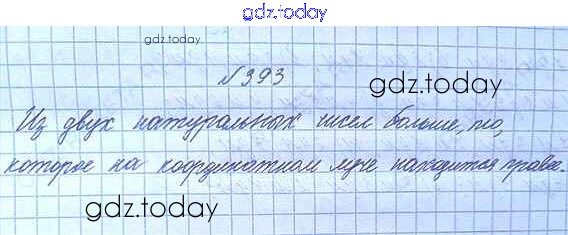 gdz.today
gdz.today
№393
gdz.today
Из двух натуральных чисел больше, то,
которое на координатном луче находится правее.
gdz.today